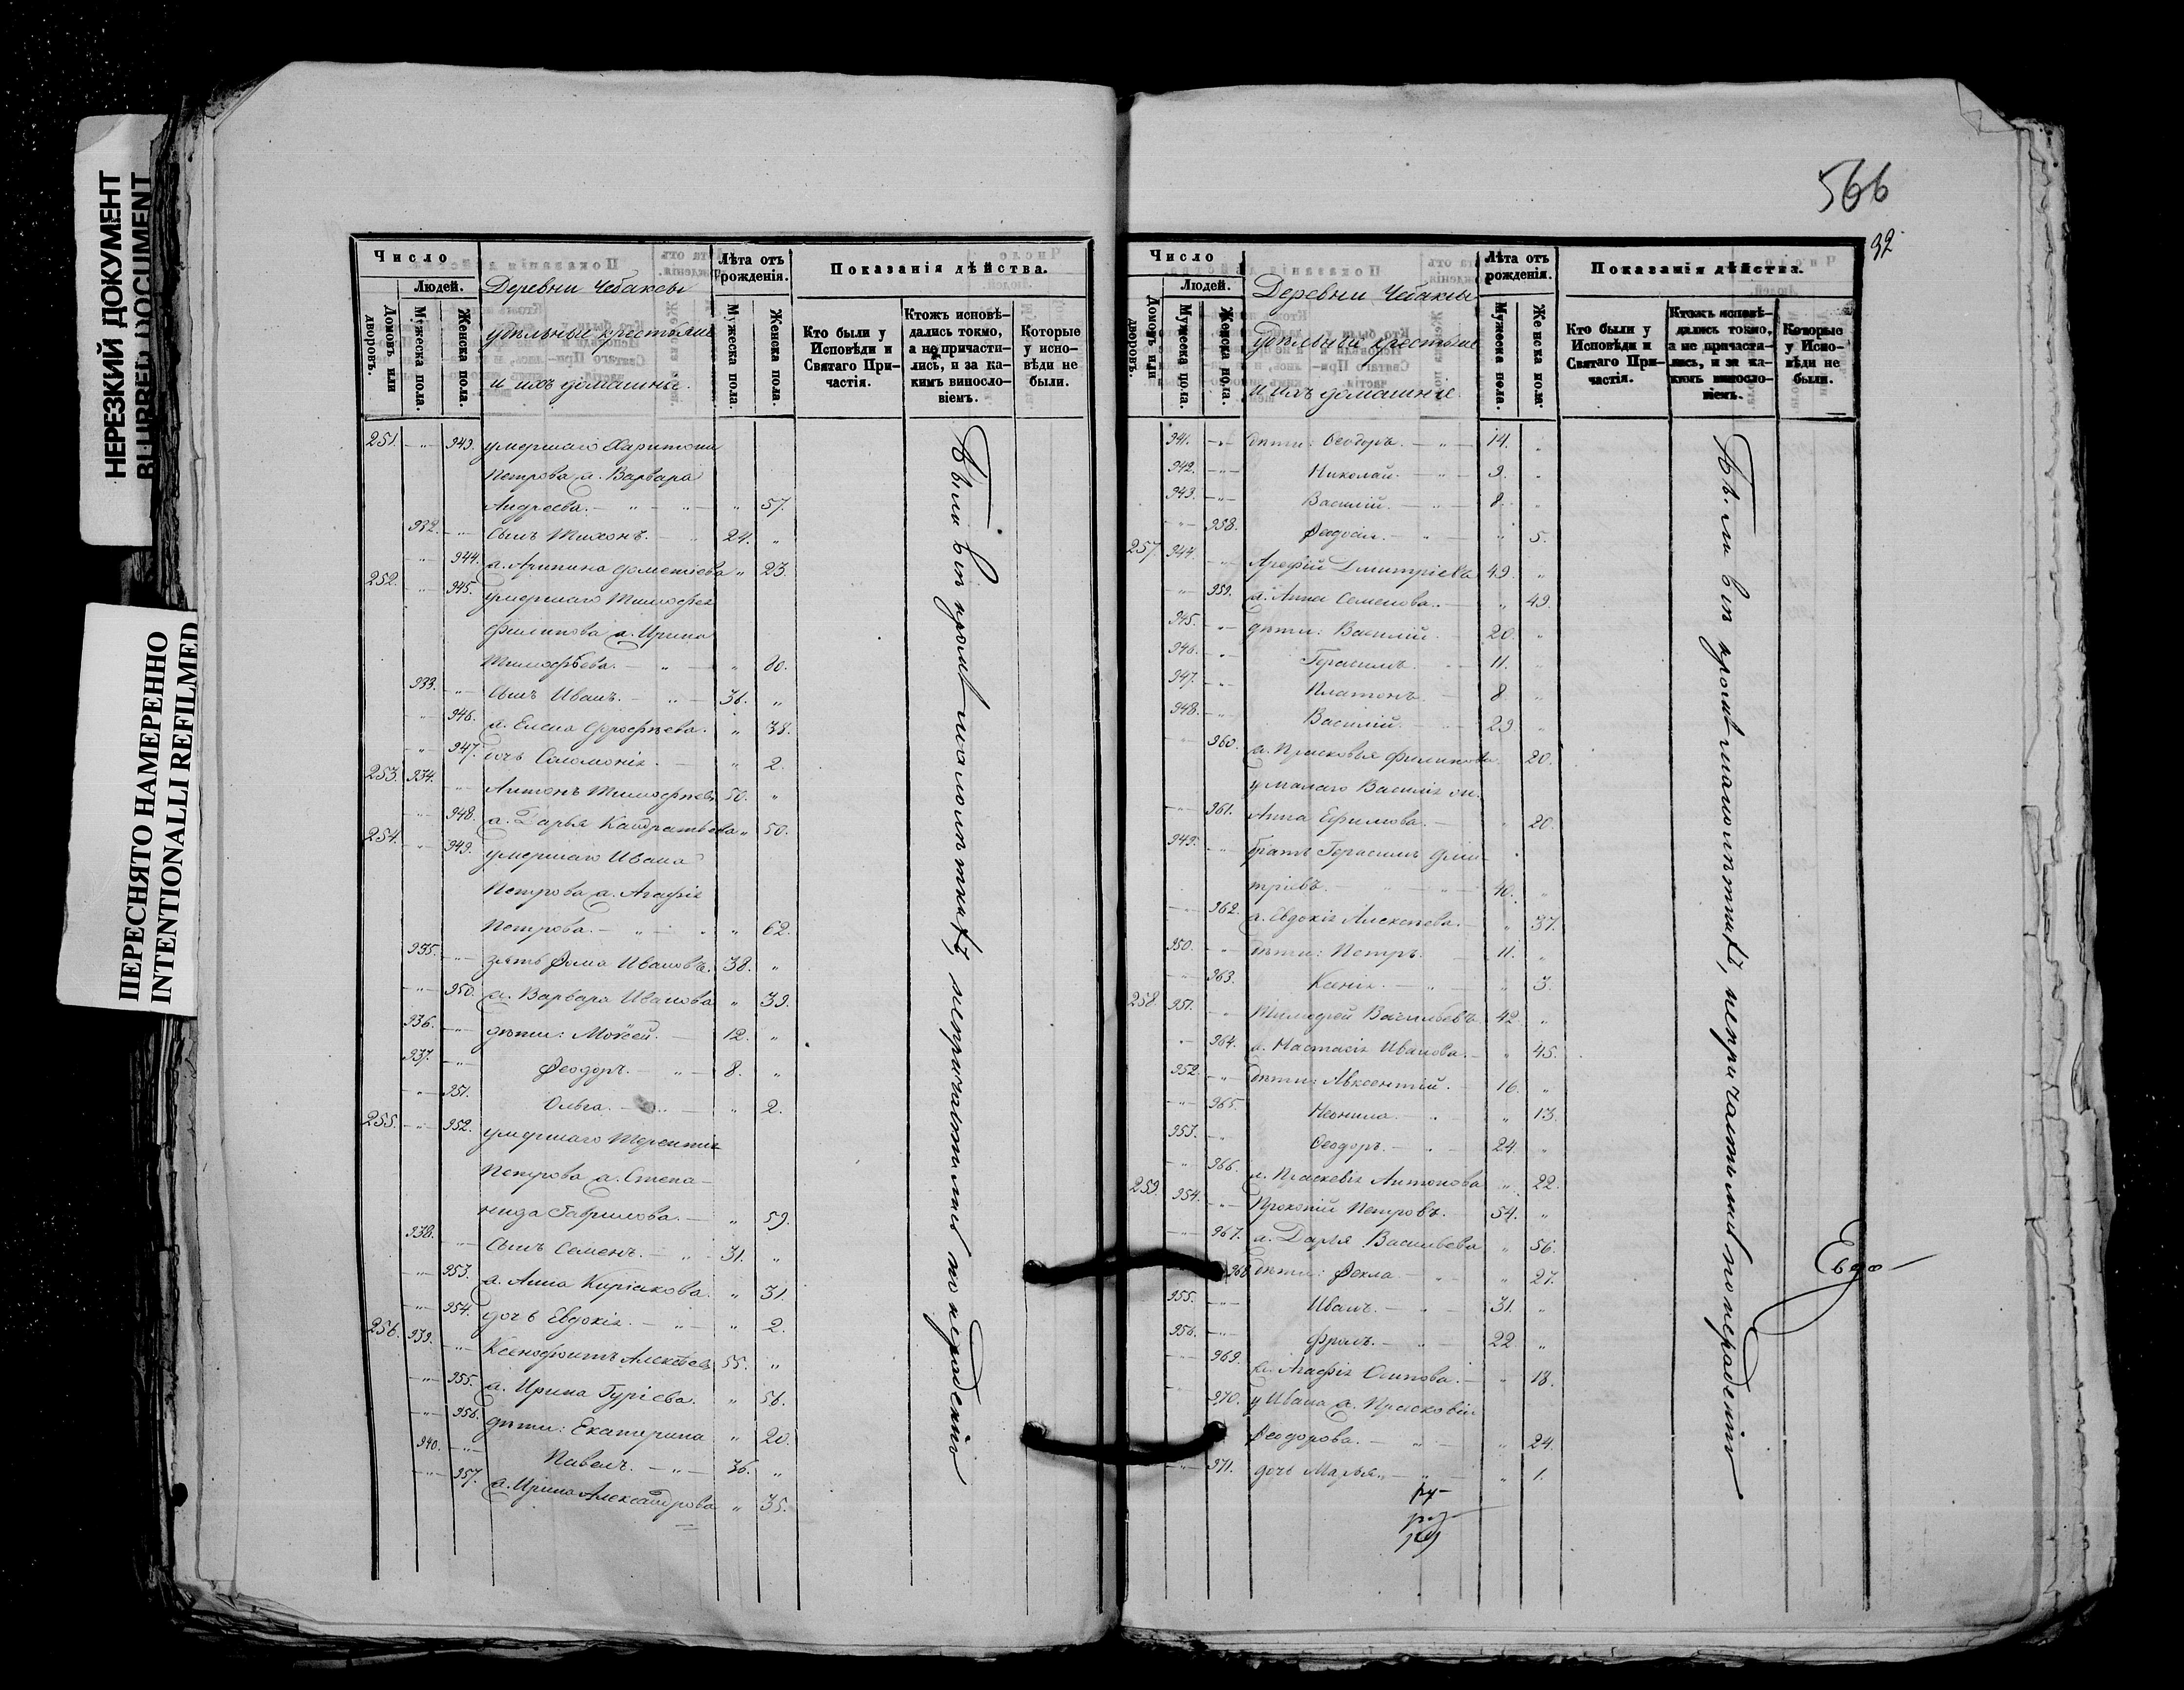 НЕРЕЗКИЙ ДОКУМЕНТ
BLURRED DOCUMENT
ПЕРЕСНЯТО НАМЕРЕННО
INTENTIONALLI REFILMED
Число
Людей.
Домовъ или дворовъ.
Мужеска пола.
Женска пола.
Деревни Чебаксы
удѣльные крестьяне
и ихъ домашніе.
Лѣта отъ рожденія.
Мужеска пола.
Женска пола.
Показанія дѣйства.
Кто были у Исповѣди и Святаго Причастія.
Ктожъ исповѣдались токмо, а не причастились, и за какимъ винословіемъ.
Которые у исповѣди не были.
251. -"- 943. умершаго Харитона
Петрова ж. Варвара
Андреева. - " - " - " 57.
932. -"- сынъ Тихонъ. - " 24. "
-"- 944. ж. Агипина Дометіева " 23.
252. -"- 945. умершаго Тимофея
Филипова ж. Ирина
Тимофѣева. - " - " 80.
933. -"- сынъ Иванъ. - " - 36. "
-"- 946. ж. Елена Ерофѣева. " 38.
" 947. дочь Соломонія. - " 2.
253. 934. -"- Антонъ Тимофѣевъ 50. "
-"- 948. ж. Дарья Кандратьева " 50.
254. -"- 949. умершаго Ивана
Петрова ж. Агафія
Петрова. - " - " " 62.
935. -"- зять Фома Ивановъ. 38. "
-"- 950. ж. Варвара Иванова " 39.
936. -"- дѣти: Моѵсей. - 12. "
937. -"- Феодоръ. - " - 8. "
-"- 951. Ольга. - " - " 2.
255. -"- 952. умершаго Терентія
Петрова ж. Степа-
нида Гаврилова. - " 59.
938. -"- сынъ Семенъ. - " - 31. "
-"- 953. ж. Анна Киріакова. " 31.
-"- 954. дочь Евдокія. - " - " 2.
256. 939. -"- Ксенофонтъ Алексѣевъ 55. "
-"- 955. ж. Ирина Гуріева. " 56.
-"- 956. дѣти: Екатерина " 20.
940. -"- Павелъ. - " - 36. "
-"- 957. ж. Ирина Александрова " 35.
Были всѣ кромѣ малолѣтнихъ, непричастились по нерадѣнію
566
92
Число
Людей.
Домовъ или дворовъ.
Мужеска пола.
Женска пола.
Деревни Чебаксы
удѣльные крестьяне
и ихъ домашніе.
Лѣта отъ рожденія.
Мужеска пола.
Женска пола.
Показанія дѣйства.
Кто были у Исповѣди и Святаго Причастія.
Ктожъ исповѣдались токмо, а не причастились, и за какимъ винословіемъ.
Которые у Исповѣди не были.
941. -"- дѣти: Феодоръ. - " - 14. "
942. -"- Николай. - " - 9. "
943. -"- Василій. - " - 8. "
-"- 958. Феодосія. - " - " 5.
257. 944. -"- Арефій Дмитріевъ 49. "
-"- 959. ж. Анна Семенова. - " 49.
945. -"- дѣти: Василій. - 20. "
946. -"- Герасимъ. - 11. "
947. -"- Платонъ. - 8. "
948. -"- Василій. - 29. "
960. ж. Прасковья Филипова. 20.
у малаго Василія ж.
-"- 961. Анна Ефимова. - " 20.
949. -"- братъ Герасимъ Дми-
тріевъ. - " - " - 40. "
-"- 962. ж. Евдокія Алексѣева. - " 37.
950. -"- дѣти: Петръ. - 11. "
-"- 963. Ксенія. - " - " 3.
258. 951. -"- Тимофей Васильевъ 42. "
-"- 964. ж. Настасія Иванова. - " 45.
952. -"- дѣти: Авксентій. - 16. "
-"- 965. Неонила. - " - " 13.
953. -"- Феодоръ. - " - 24. "
-"- 966. ж. Праскевія Антонова " 22.
259. 954. -"- Прокопій Петровъ. - 54. "
-"- 967. ж. Дарья Васильева " 56.
968. дѣти: Фекла - " - " 27.
955. -"- Иванъ. - " - 31. "
956. -"- Фролъ. - " - 22. "
969. ж. Агафія Осипова. - " 18.
970. у Ивана ж. Прасковія
Феодорова. - " - " 24.
-"- 971. дочь Марья. - " - " 1.
Были всѣ кромѣ малолѣтнихъ, непричастились по нерадѣнію
Евдо-